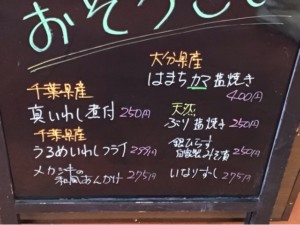 おそうざい
千葉県産
真いわし煮付 250円
千葉県産
うるめいわしフライ 250円
メカジキの
和風あんかけ 275円
大分県産
はまちカマ塩焼き
400円
天然
ぶり塩焼き 250円
銀ひらす
自家製みそ漬 250円
いなりずし 275円